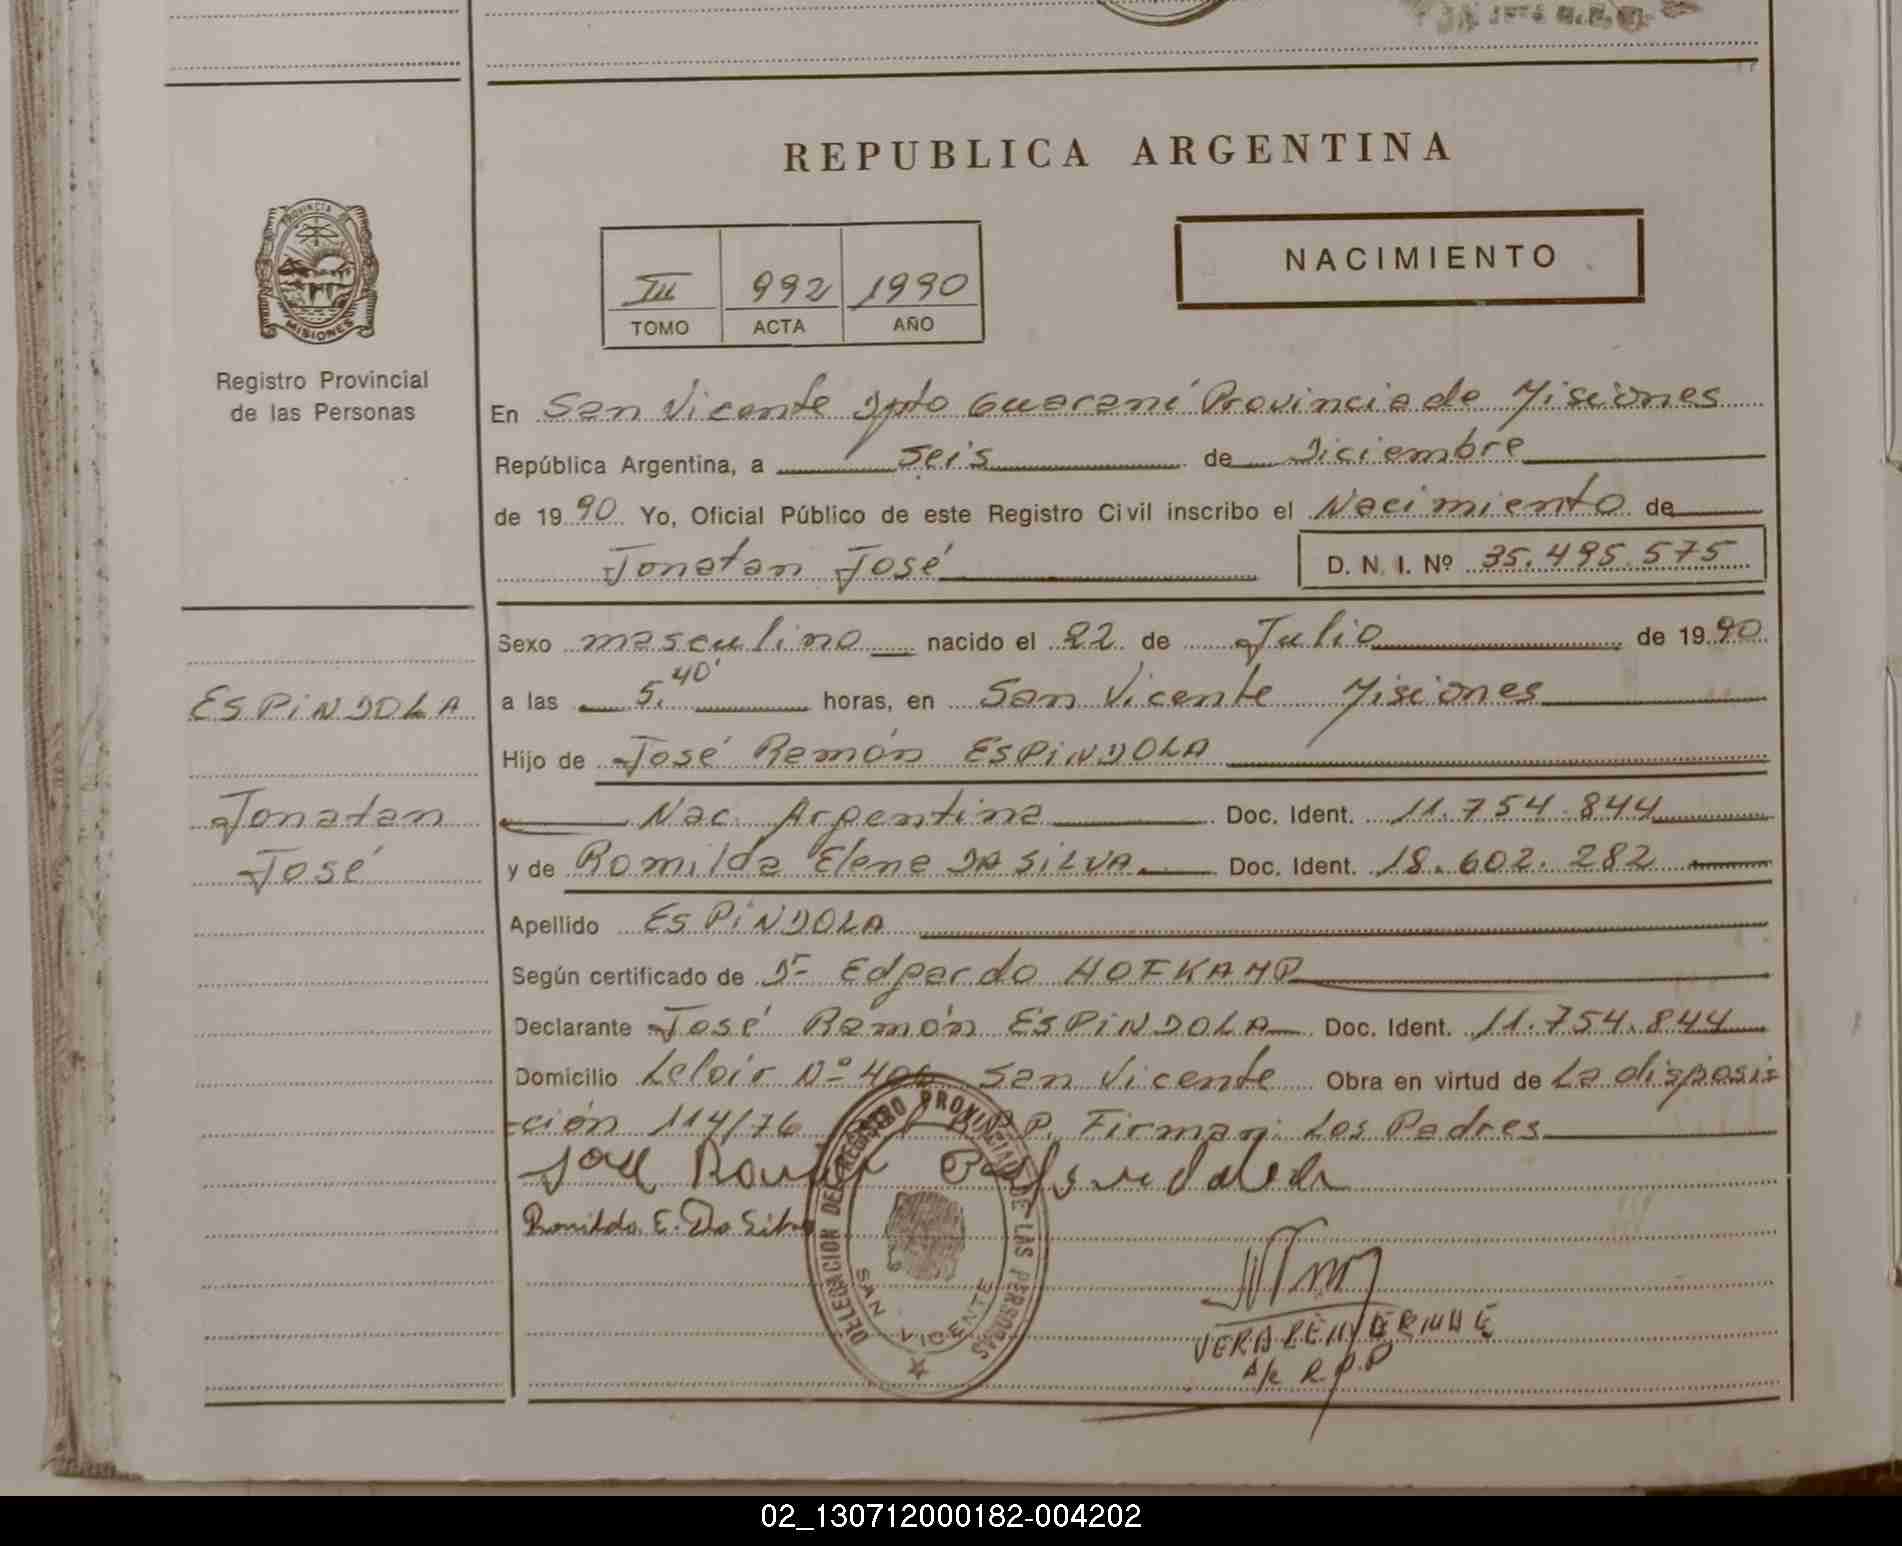 REPUBLICA ARGENTINA
PROVINCIA DE
MISIONES
Registro Provincial
de las Personas
NACIMIENTO
III 992 1990
TOMO ACTA AÑO
En San Vicente Dpto Guaraní Provincia de Misiones
República Argentina, a Seis de Diciembre
de 1990 Yo, Oficial Público de este Registro Civil inscribo el Nacimiento de
Jonatan José D. N. I. Nº 35.495.575
Sexo masculino nacido el 22 de Julio de 1990
ESPINDOLA
a las 5,40' horas, en San Vicente Misiones
Hijo de José Ramón ESPINDOLA
Jonatan
José
Nac. Argentina Doc. Ident. 11.754.844
y de Romilda Elena DA SILVA Doc. Ident. 18.602.282
Apellido ESPINDOLA
Según certificado de Dr Edgardo HOFKAMP
Declarante José Ramón ESPINDOLA Doc. Ident. 11.754.844
Domicilio Leloir Nº 406 San Vicente Obra en virtud de La disposi=
=ción 114/76 R.P.P. Firman: Los Padres
José Ramón
Romilda E. Da Silva
DELEGACION DEL REGISTRO PROVINCIAL DE LAS PERSONAS
SAN VICENTE
VERA
A/c R.P.P
02_130712000182-004202